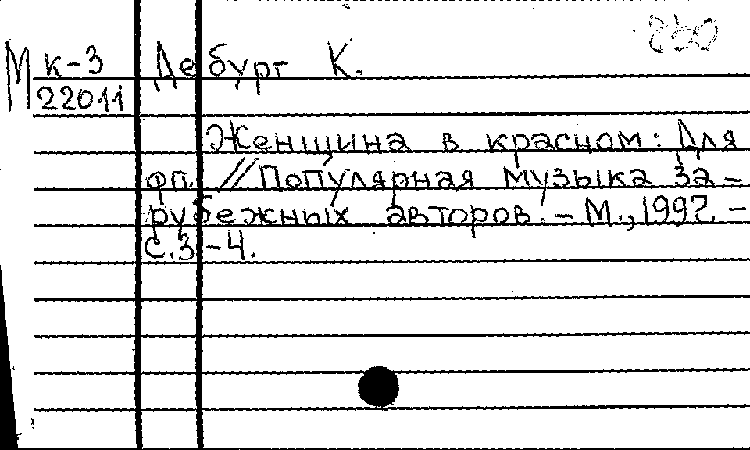 М к-3 Дебург К.
22011
Женщина в красном: Для
фп. // Популярная музыка за-
рубежных авторов. - М., 1997. -
С.3-4.